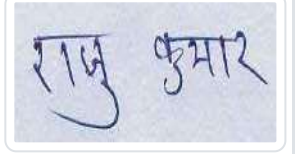 राजु कुमार